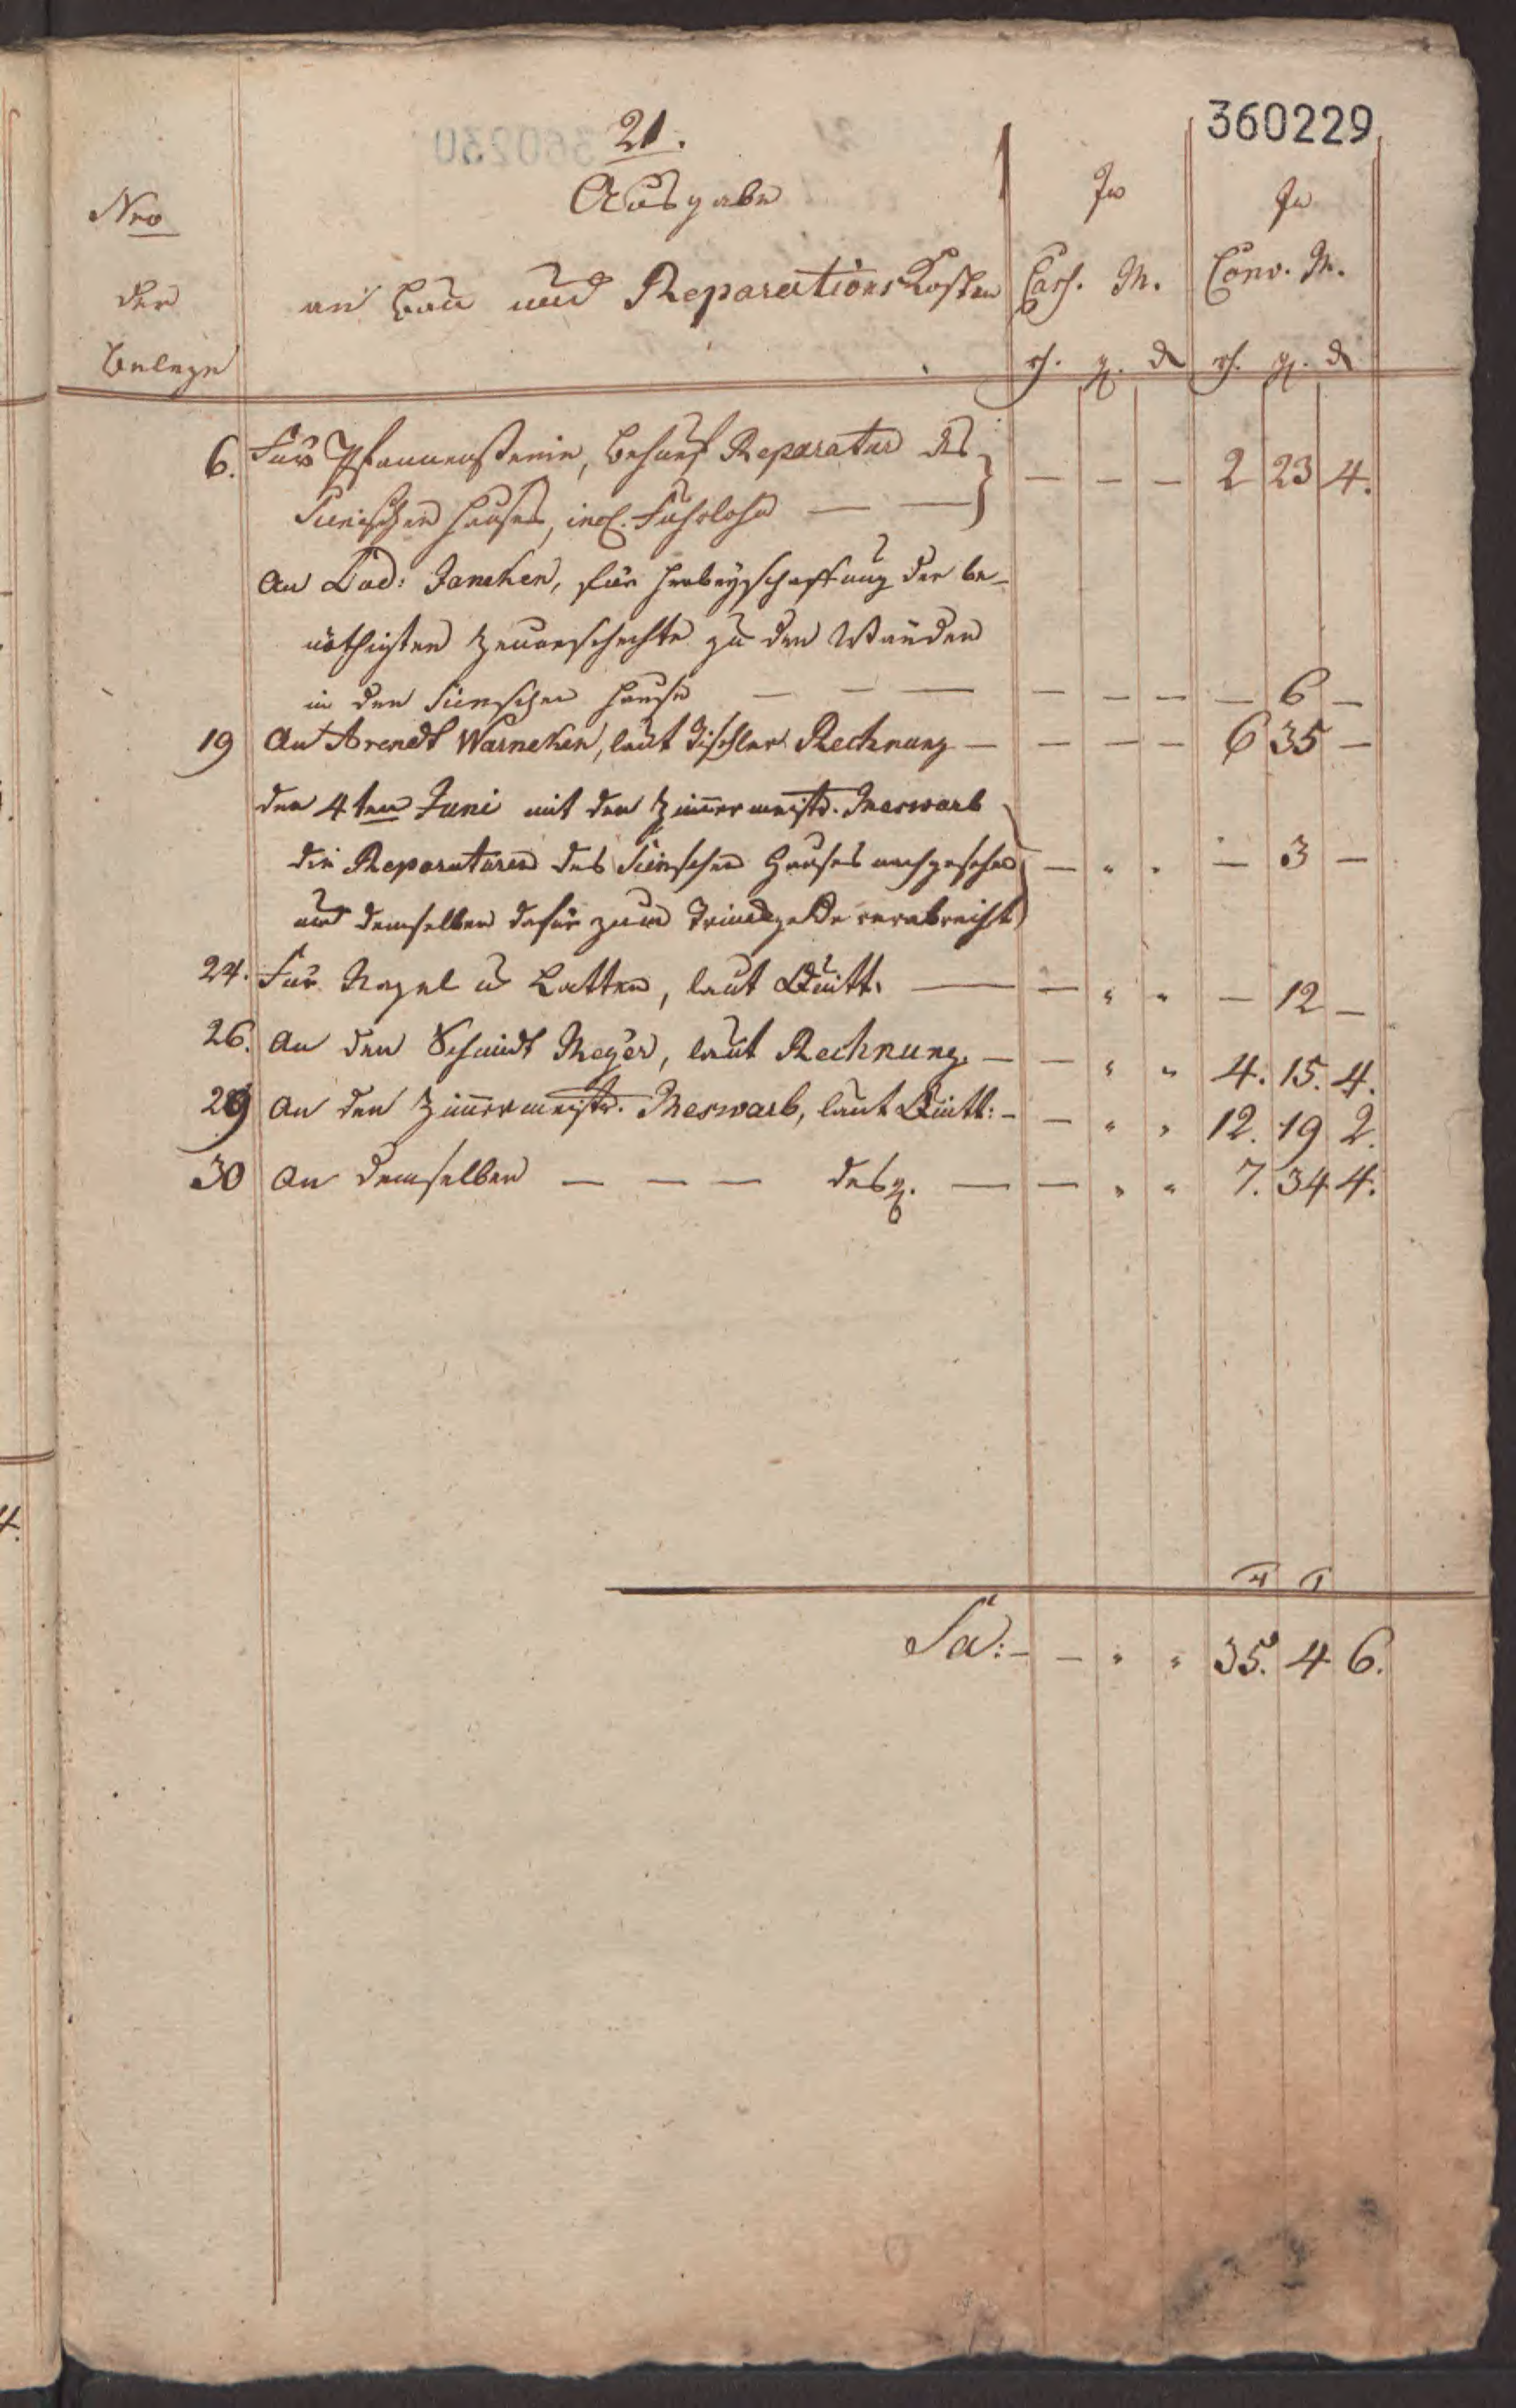 360229
21.
Ausgabe
an Bau und Reparations Kosten
Nro
der
Belege
In
Cass. M.
rh. g. d
In
Conv. M.
rh. g. d
6. Für Pfannensteine, behuef Reparatur des
Sünschen Hauses, incl. Fuhrlohn — — } — — — 2 23 4.
An Lud: Janeken, für Herbeyschaffung der be-
nöthigten zu den Wänden
in den Sünschen Hause — — — — — — — 6 —
19 An Arendt Warneken, laut Tischler Rechnung — — — — 6 35 —
den 4ten Juni mit den Zimmermeistr. Meswarb
die Reparaturen des Sünschen Hauses nachgesehen — " " — 3 —
und demselben dafür zum Trinkgelde verabreicht
24. Für Nagel u Latten, laut Quitt. — — " " — 12 —
26. An den Schmidt Meyer, laut Rechnung. — — " " 4. 15. 4.
29 An den Zimmermeistr. Meswarb, laut Quitt: — — " " 12. 19 2.
30 An demselben — — — desgl. — — " " 7. 34 4.
Sa: — — " " 35. 4 6.